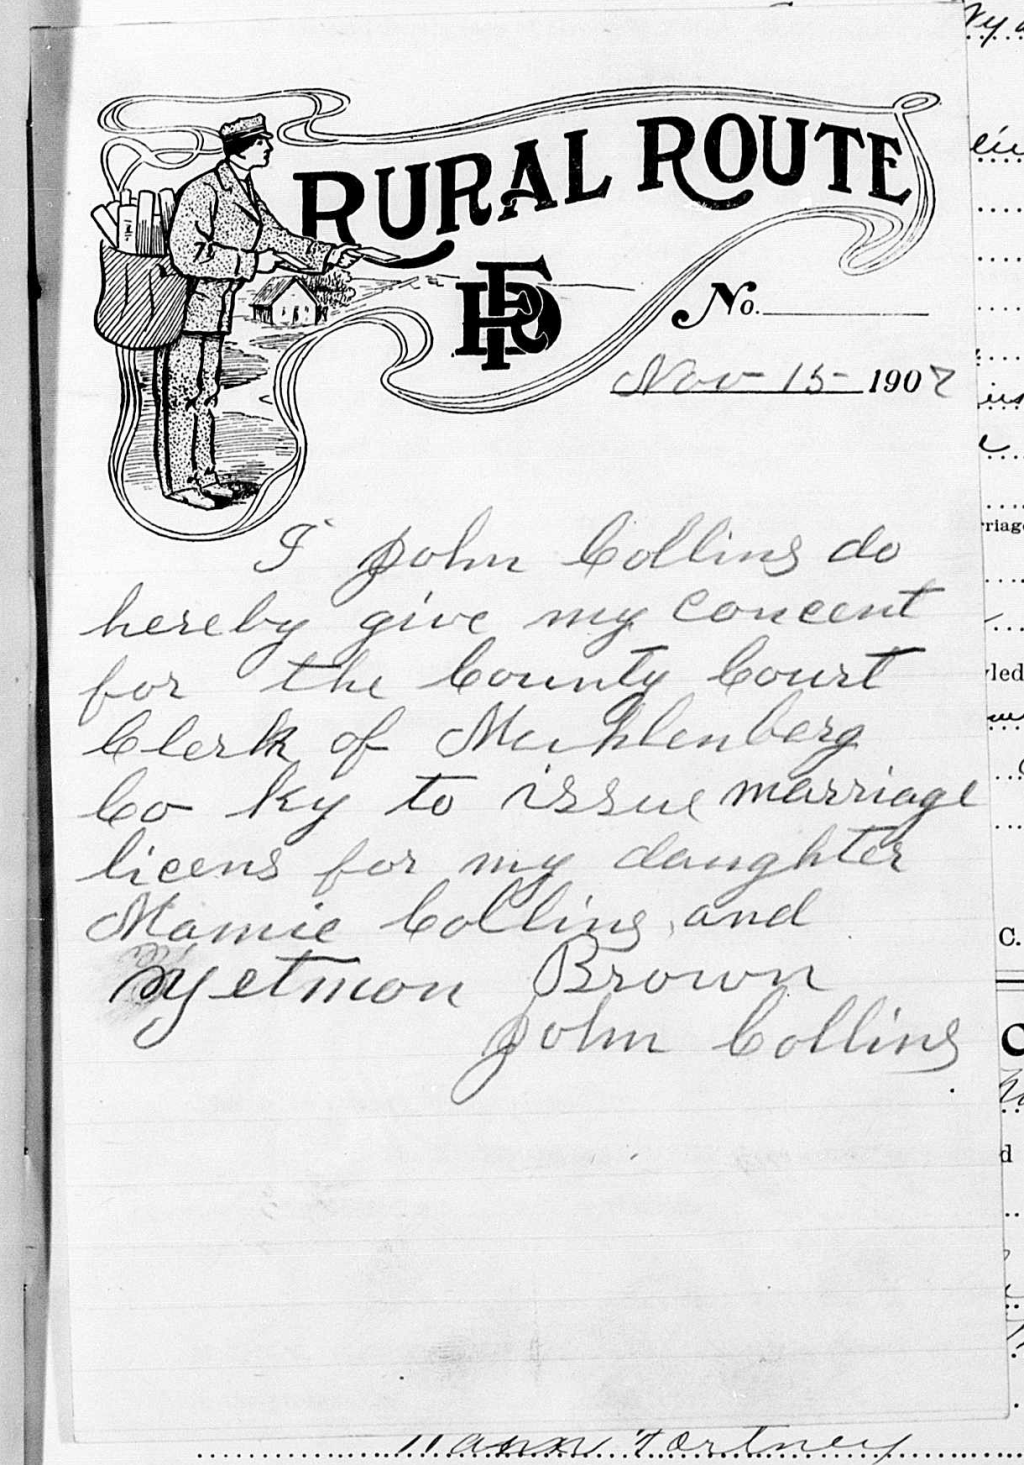 RURAL ROUTE
RFD
No.
Nov 15 - 1907
I John Collins do
hereby give my concent
for the County Court
Clerk of Muhlenberg
Co Ky to issue marriage
licens for my daughter
Mamie Collins and
Yetmon Brown
John Collins
riage
led
C.
d
Fortney